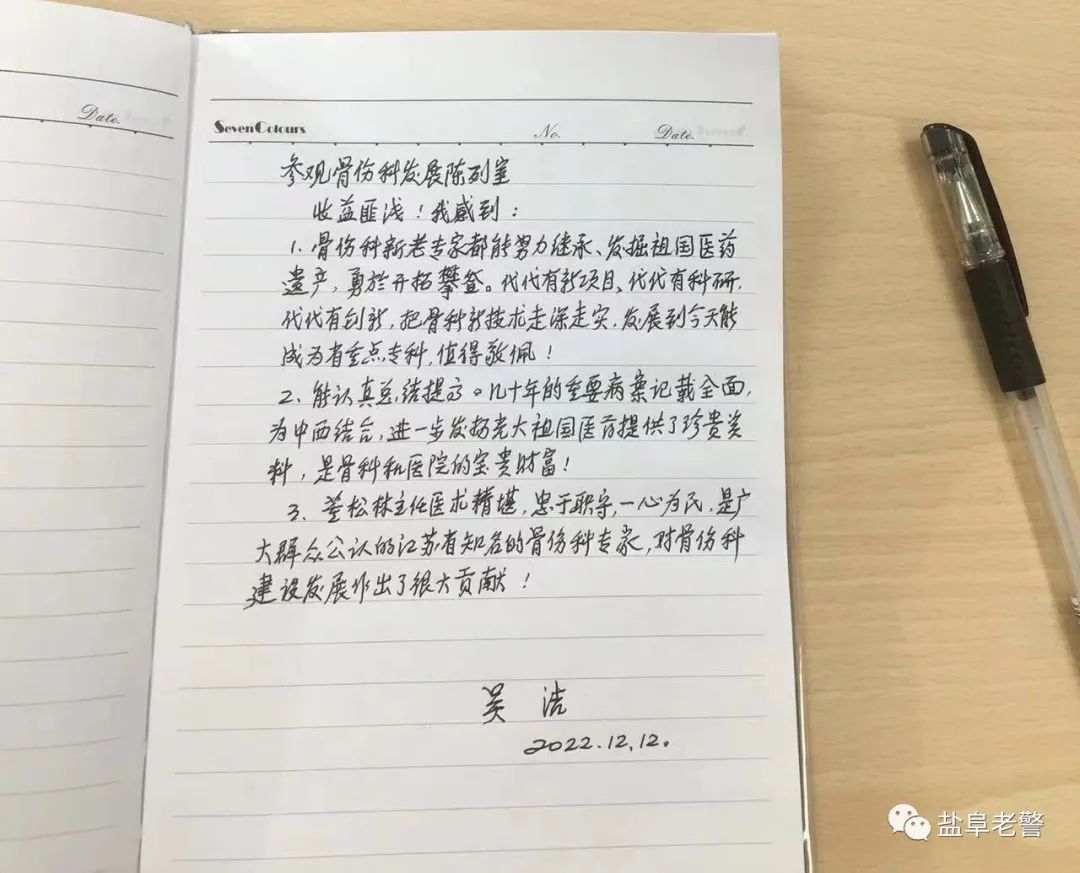 Date.
SevenColours No. Date.
参观骨伤科发展陈列室
收益匪浅！我感到：
1、骨伤科新老专家都能努力继承、发掘祖国医药
遗产，勇於开拓攀登。代代有新项目、代代有科研，
代代有创新，把骨科新技术走深走实，发展到今天能
成为省重点专科，值得敬佩！
2、能认真总结提高。几十年的重要病案记载全面，
为中西结合，进一步发扬光大祖国医药提供了珍贵资
料，是骨科和医院的宝贵财富！
3、董松林主任医术精堪，忠于职守，一心为民，是广
大群众公认的江苏省知名的骨伤科专家，对骨伤科
建设发展作出了很大贡献！
吴洁
2022.12.12.
盐阜老警